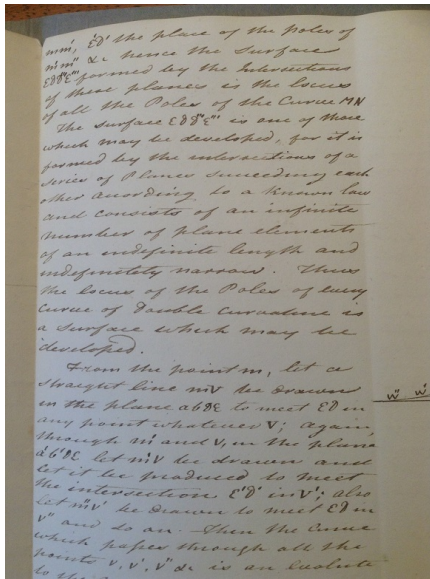 mm', E'D' the place of the poles of
m'm'' &c hence the Surface
formed by the Intersections
of these planes is the locus
of all the Poles of the Curve MN
The surface is one of those
which may be developed, for it is
formed by the intersections of a
series of Planes succeeding each
other according to a known law
and consists of an infinite
number of plane elements
of an indefinite length and
indefinitely narrow. Thus
the locus of the Poles of every
Curve of Double Curvature is
a surface which may be
developed.
From the point m, let a
straight line mV be drawn
in the plane to meet ED in
any point whatever V; again,
through m' and V, in the plane
let m'V be drawn and
let it be produced to meet
the intersection E'D' in V'; also
let m''V' be drawn to meet in
V'' and so on. Then the Curve
which passes through all the
points V, V', V'' &c is an Evolute
to the
W'' W'